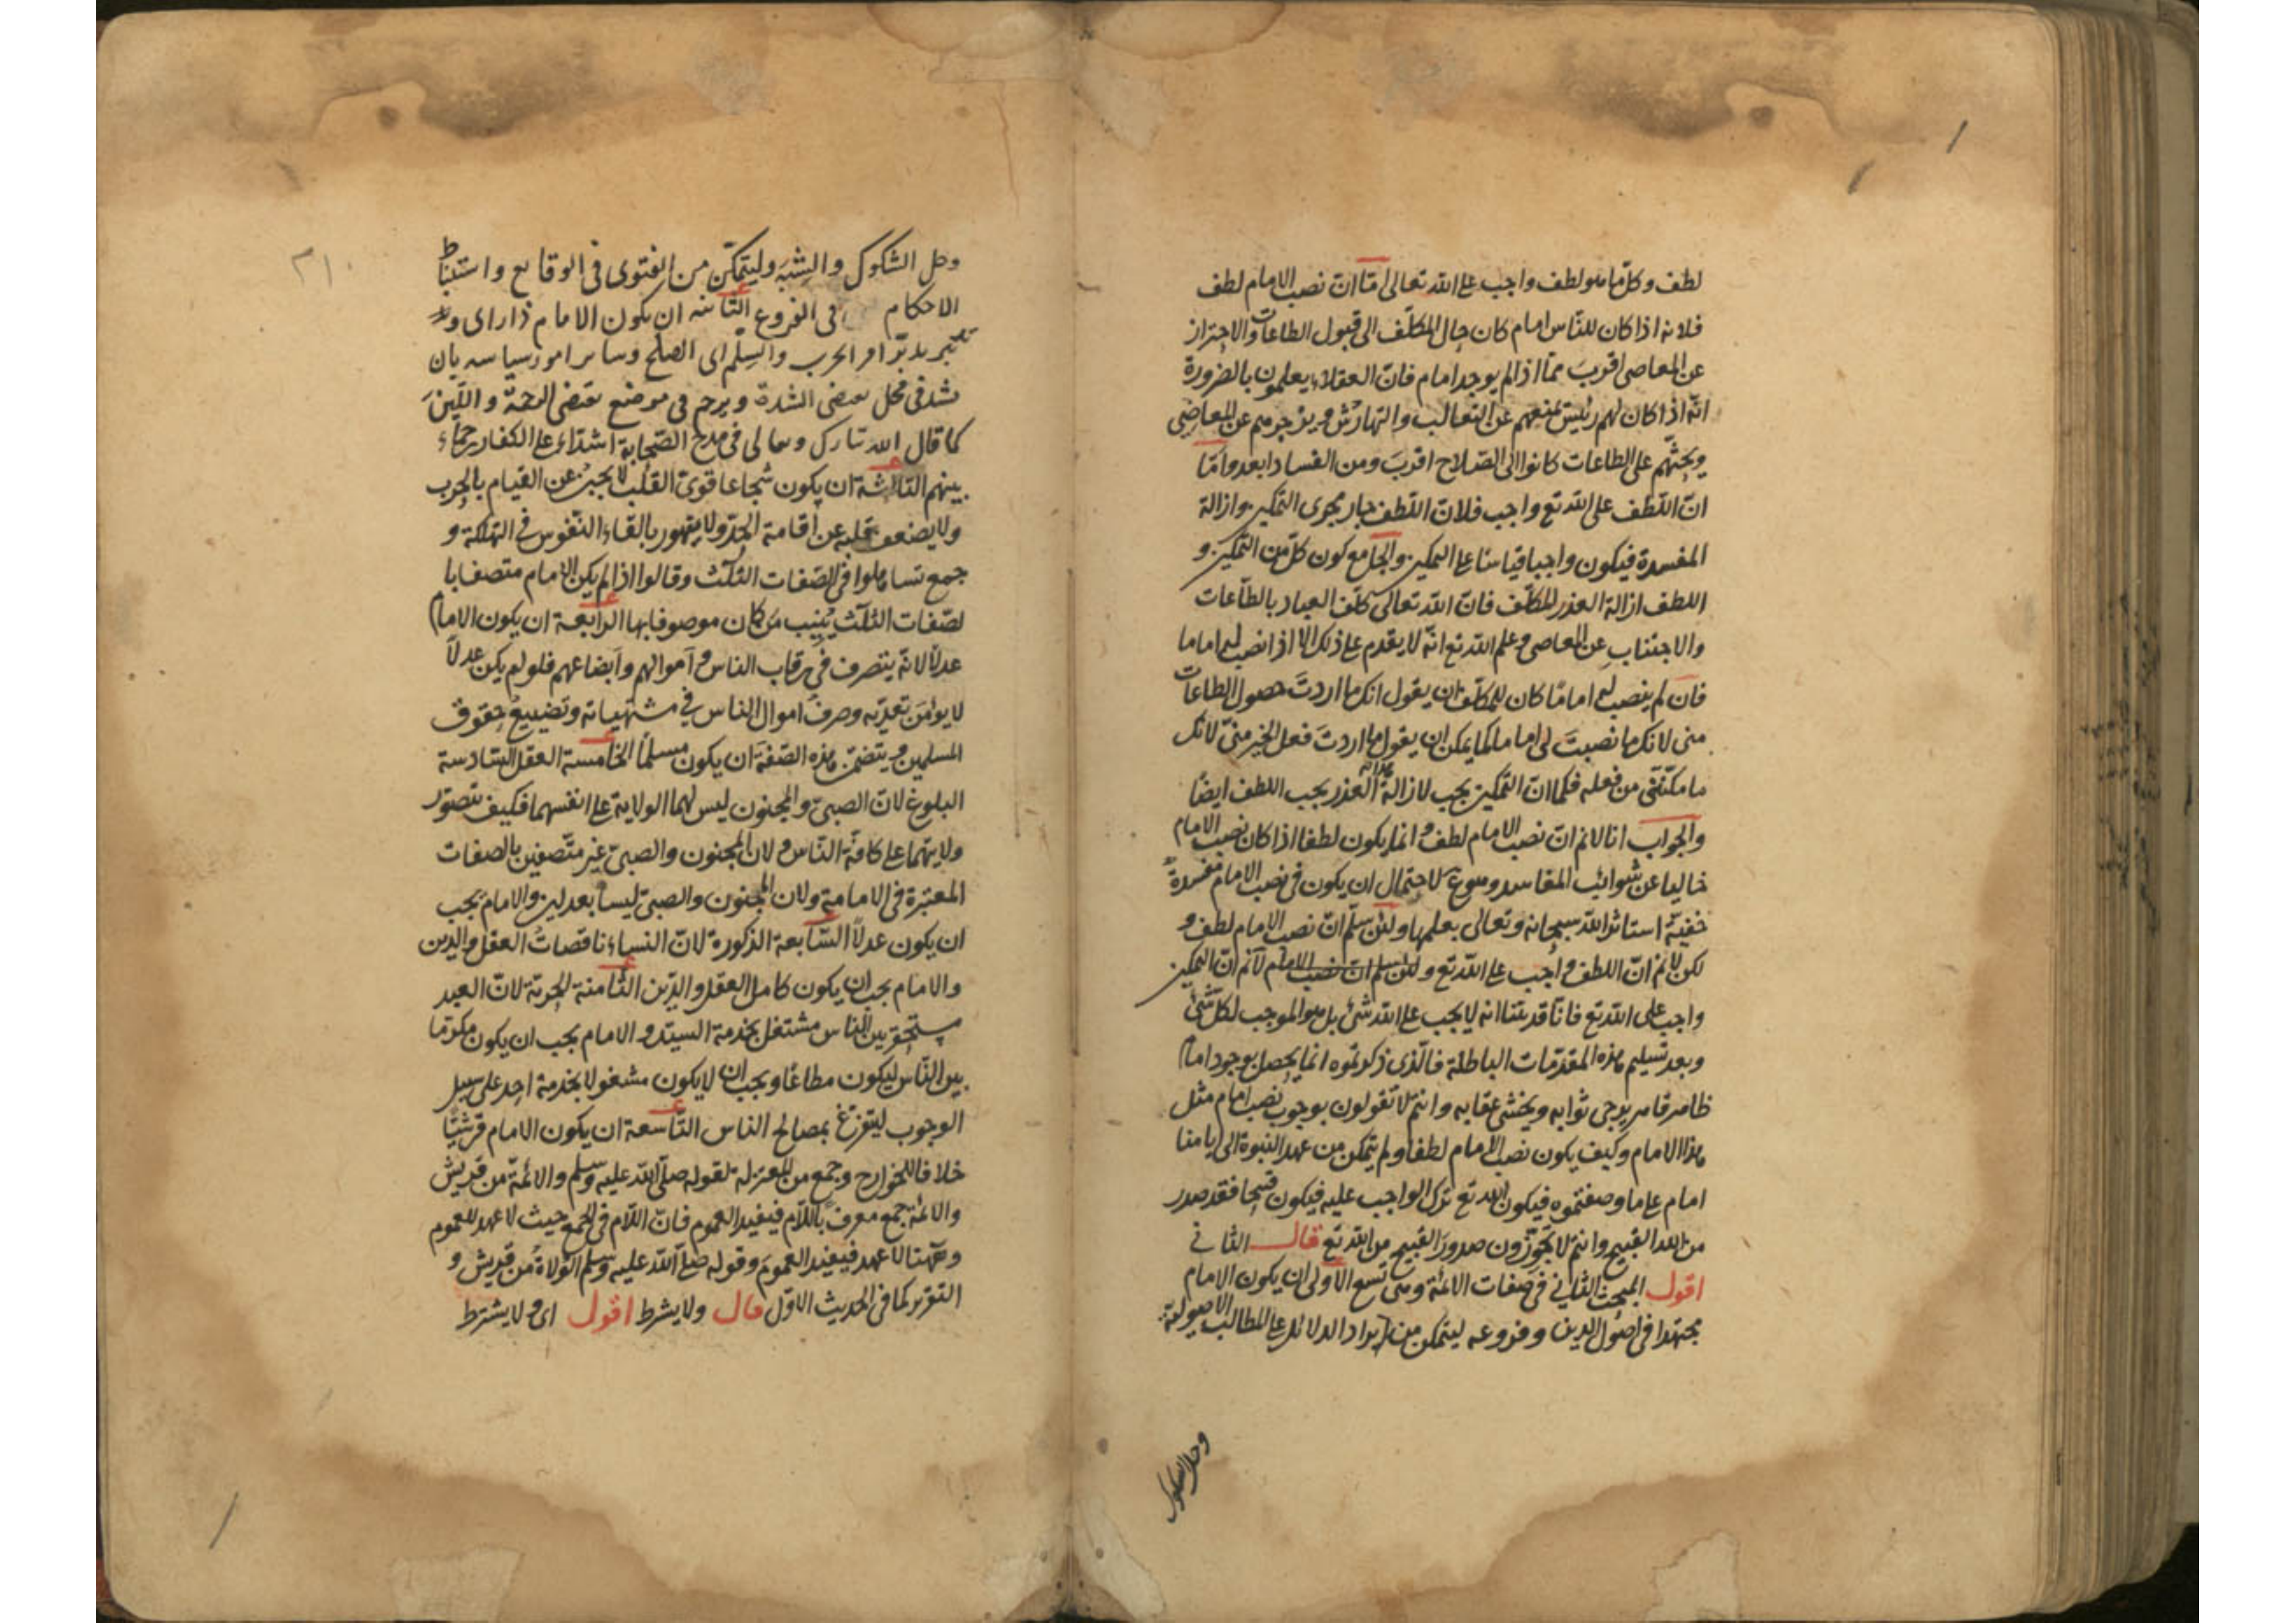 لطف وكل ما هو لطف واجب على الله تعالى اما ان نصب الامام لطف
فلانه اذا كان للناس امام كان حال المكلف الى قبول الطاعات والاحتراز
عن المعاصى اقرب مما اذا لم يوجد امام فان العقلاء يعلمون بالضرورة
انه اذا كان لهم رئيس يمنعهم عن التغالب والتهارش ويزجرهم عن المعاصى
ويحثهم على الطاعات كانوا الى الصلاح اقرب ومن الفساد ابعد واما
ان اللطف على الله تع واجب فلان اللطف جار مجرى التمكين وازالة
المفسدة فيكون واجبا قياسا على التمكين والجامع كون كل من التمكين و
اللطف ازالة العذر للمكلف فان الله تعالى كلف العباد بالطاعات
والاجتناب عن المعاصى وعلم الله تع انه لا يقدم على ذلك الا اذا نصب لهم اماما
فان لم ينصب لهم اماما كان للمكلف ان يقول انك ما اردت حصول الطاعات
منى لانك ما نصبت لى اماما كما يمكن ان يقول ما اردت فعل الخير منى لانك
ما مكنتنى من فعله فكما ان التمكين يجب لازالة العذر يجب اللطف ايضا
والجواب انا لا نم ان نصب الامام لطف وانما يكون لطفا اذا كان نصب الامام
خاليا عن شوائب المفاسد وهو مم لاحتمال ان يكون فى نصب الامام مفسدة
خفية استاثر الله سبحانه وتعالى بعلمها ولئن سلم ان نصب الامام لطف و
لكن لا نم ان اللطف واجب على الله تع ولئن سلم ان نصب الامام لا نم ان التمكين
واجب على الله تع فانا قد بينا انه لا يجب على الله شئ بل هو الموجب لكل شئ
وبعد تسليم هذه المقدمات الباطلة فالذى ذكرتموه انما يحصل بوجود امام
ظاهر قاهر يرجى ثوابه ويخشى عقابه وانتم لا تقولون بوجوب نصب امام مثل
هذا الامام وكيف يكون نصب الامام لطفا ولم يتمكن من عهد النبوة الى ايامنا
امام على ما وصفتموه فيكون الله تع ترك الواجب عليه فيكون قبيحا فقد صدر
من الله القبيح وانتم لا تجوزون صدور القبيح من الله تع قال الثانى
اقول المبحث الثانى فى صفات الائمة وهى تسع الاولى ان يكون الامام
مجتهدا فى اصول الدين وفروعه ليتمكن من ايراد الدلائل على المطالب الاصولية
وحل الشكوك
٢١٠
وحل الشكوك والشبه وليتمكن من الفتوى فى الوقايع واستنباط
الاحكام فى الفروع الثانية ان يكون الامام ذا راى و
تدبير يدبر امر الحرب والسلم اى الصلح وسائر امور سياسه بان
يشد فى محل يقتضى الشدة ويرحم فى موضع يقتضى الرحمة واللين
كما قال الله تبارك وتعالى فى مدح الصحابة اشداء على الكفار رحماء
بينهم الثالثة ان يكون شجاعا قوى القلب لا يجبن عن القيام بالحرب
ولا يضعف قلبه عن اقامة الحد ولا يتهور بالقاء النفوس فى التهلكة و
جمع تساهلوا فى الصفات الثلث وقالوا اذا لم يكن الامام متصفا با
لصفات الثلث ينيب من كان موصوفا بها الرابعة ان يكون الامام
عدلا لانه يتصرف فى رقاب الناس واموالهم وابضاعهم فلو لم يكن عدلا
لا يؤمن تعديه وصرف اموال الناس فى مشتهياته وتضييع حقوق
المسلمين ويتضمن هذه الصفة ان يكون مسلما الخامسة العقل السادسة
البلوغ لان الصبى والمجنون ليس لهما الولاية على انفسهما فكيف تتصور
ولايتهما على كافة الناس ولان المجنون والصبى غير متصفين بالصفات
المعتبرة فى الامامة ولان المجنون والصبى ليسا بعدلين والامام يجب
ان يكون عدلا السابعة الذكورة لان النساء ناقصات العقل والدين
والامام يجب ان يكون كامل العقل والدين الثامنة الحرية لان العبد
مستحقر بين الناس مشتغل بخدمة السيد والامام يجب ان يكون مكرما
بين الناس ليكون مطاعا ويجب ان لا يكون مشغولا بخدمة احد على سبيل
الوجوب ليتفرغ بمصالح الناس التاسعة ان يكون الامام قرشيا
خلافا للخوارج وجمع من المعتزلة لقوله صلى الله عليه وسلم والائمة من قريش
والائمة جمع معرف باللام فيفيد العموم فان اللام فى الجمع حيث لا عهد للعموم
وههنا لا عهد فيفيد العموم وقوله صلى الله عليه وسلم الولاة من قريش و
التقرير كما فى الحديث الاول قال ولا يشترط اقول اى ولا يشترط